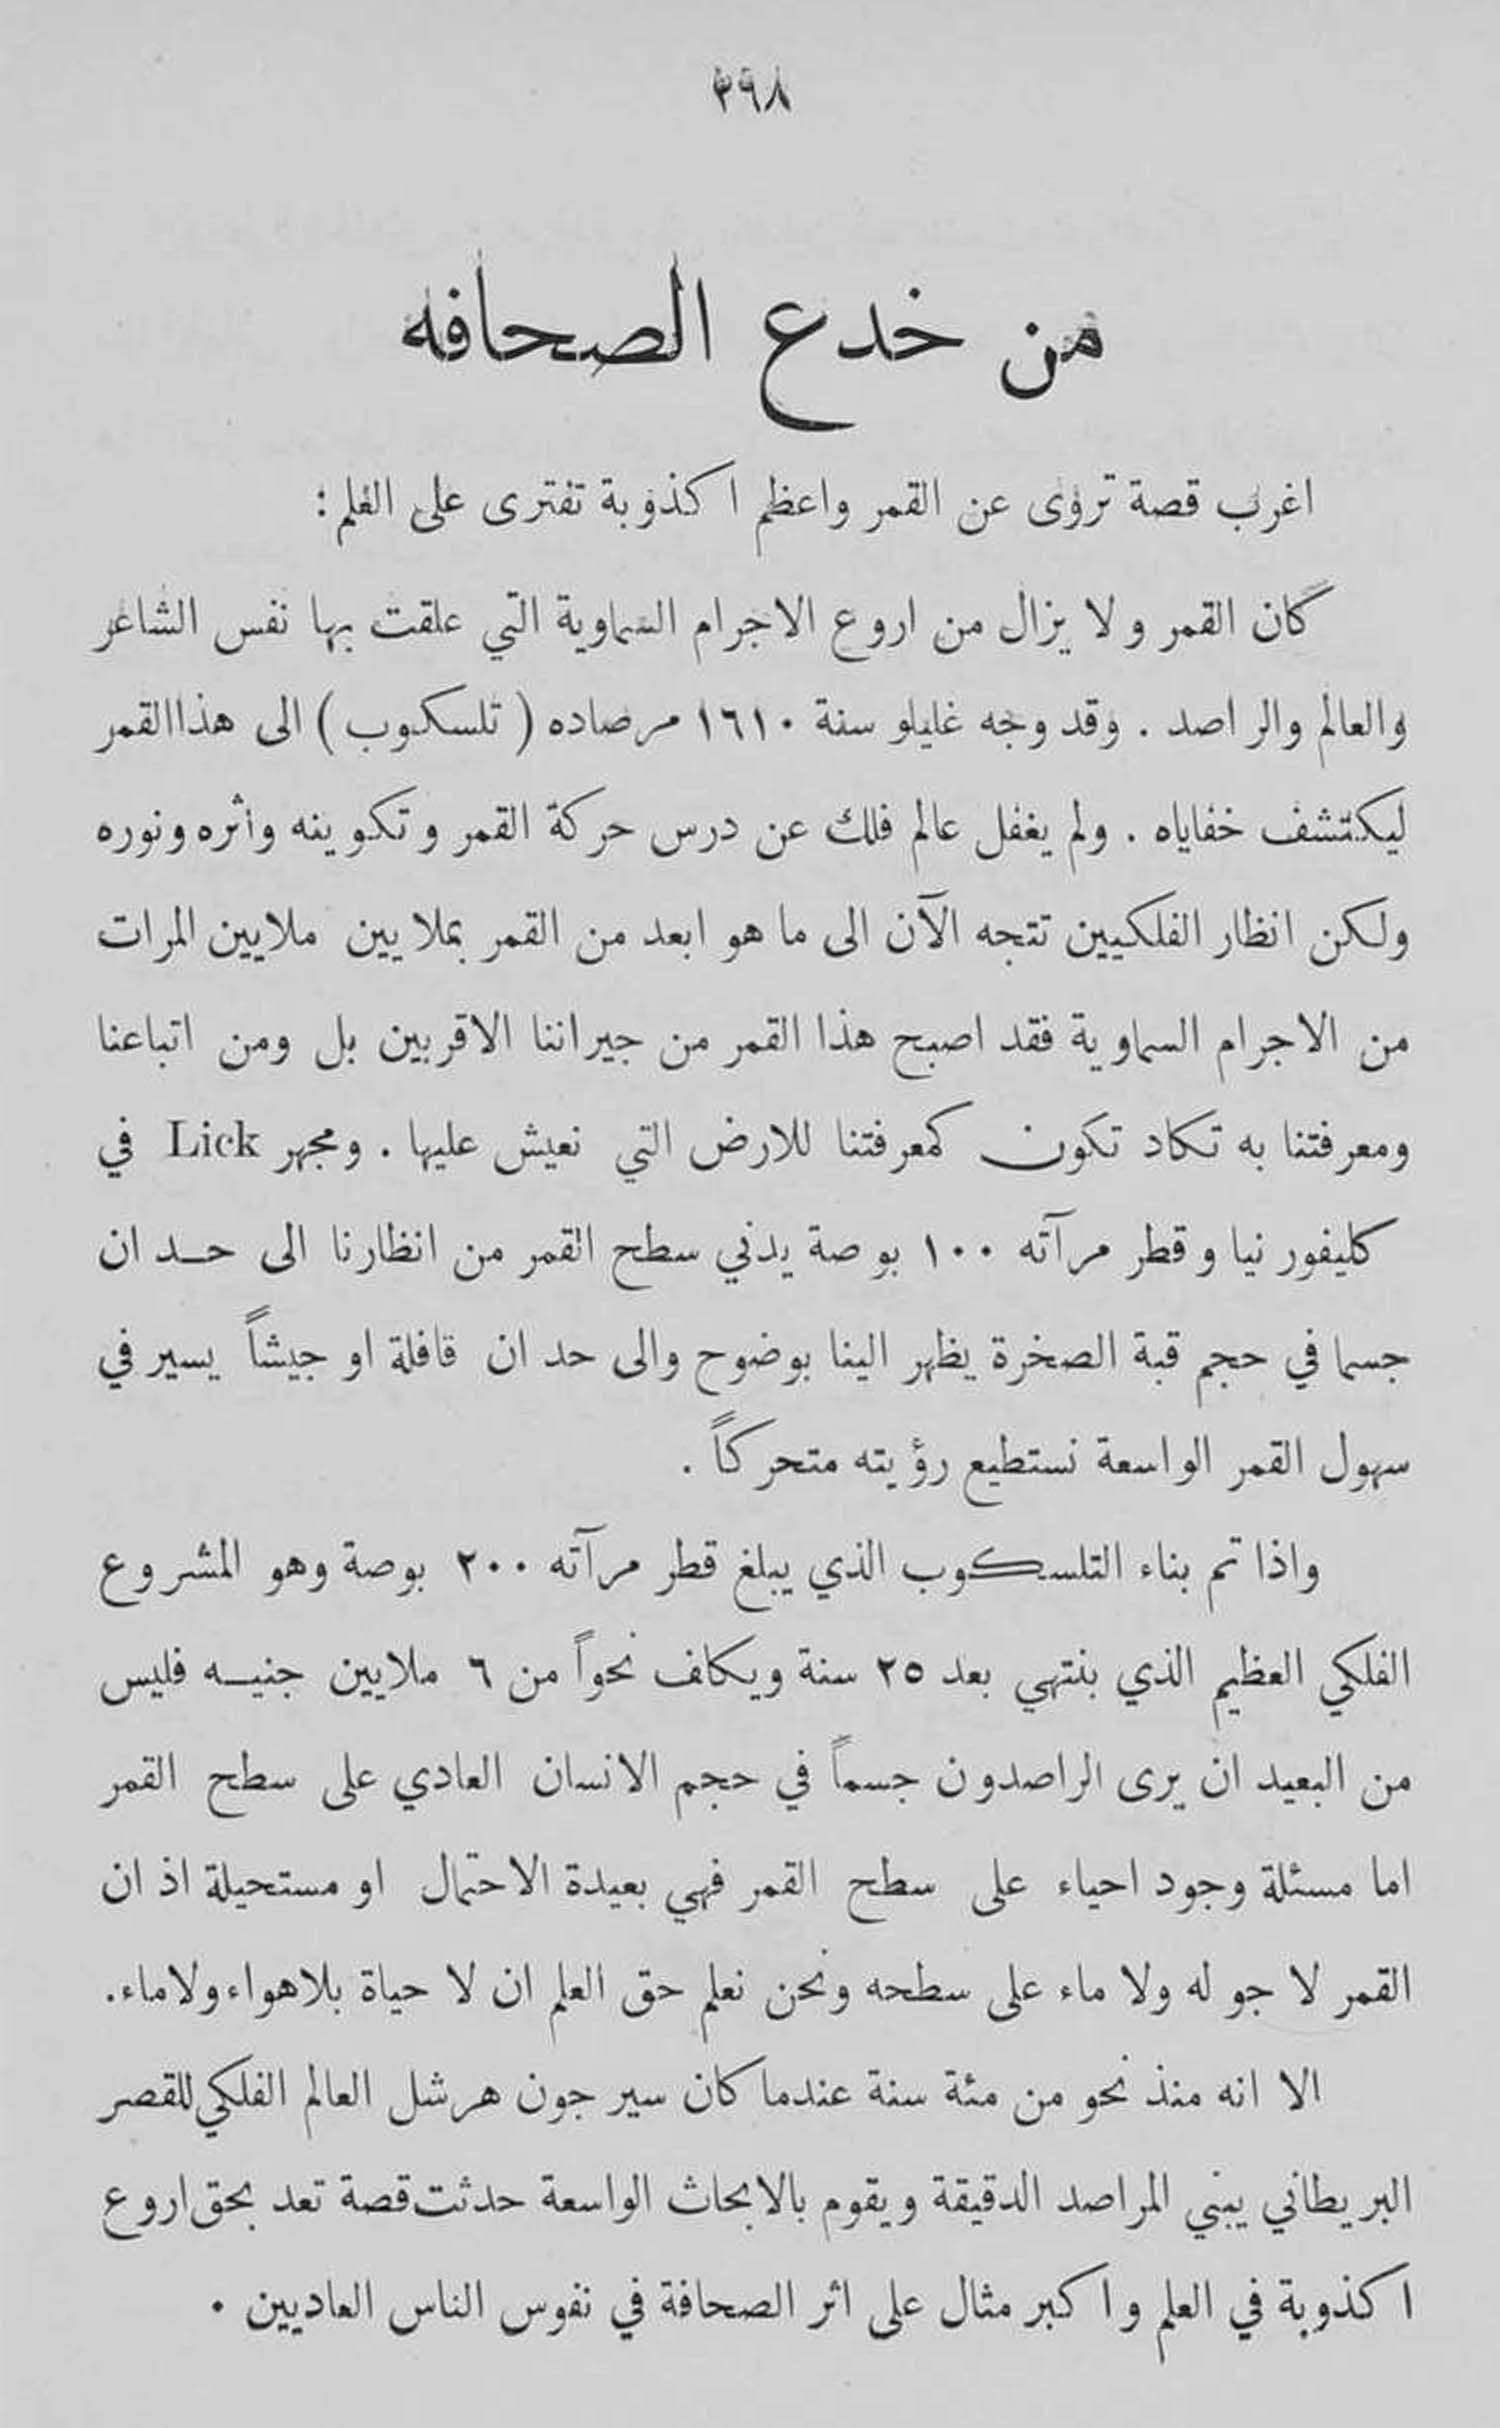 ٣٩٨
من خدع الصحافه
اغرب قصة تروى عن القمر واعظم اكذوبة تفترى على العلم :
كان القمر ولا يزال من اروع الاجرام السماوية التي علقت بها نفس الشاعر
والعالم والراصد . وقد وجه غليلو سنة ١٦١٠ مرصاده ( تلسكوب ) الى هذا القمر
ليكتشف خفاياه . ولم يغفل عالم فلك عن درس حركة القمر وتكوينه وأثره ونوره
ولكن انظار الفلكيين تتجه الآن الى ما هو ابعد من القمر بملايين ملايين المرات
من الاجرام السماوية فقد اصبح هذا القمر من جيراننا الاقربين بل ومن اتباعنا
ومعرفتنا به تكاد تكون كمعرفتنا للارض التي نعيش عليها . ومجهر Lick في
كليفورنيا وقطر مرآته ١٠٠ بوصة يدني سطح القمر من انظارنا الى حد ان
جسما في حجم قبة الصخرة يظهر الينا بوضوح والى حد ان قافلة او جيشاً يسير في
سهول القمر الواسعة نستطيع رؤيته متحركاً .
واذا تم بناء التلسكوب الذي يبلغ قطر مرآته ٢٠٠ بوصة وهو المشروع
الفلكي العظيم الذي ينتهي بعد ٢٥ سنة ويكلف نحواً من ٦ ملايين جنيه فليس
من البعيد ان يرى الراصدون جسماً في حجم الانسان العادي على سطح القمر
اما مسئلة وجود احياء على سطح القمر فهي بعيدة الاحتمال او مستحيلة اذ ان
القمر لا جو له ولا ماء على سطحه ونحن نعلم حق العلم ان لا حياة بلا هواء ولا ماء.
الا انه منذ نحو من مئة سنة عندما كان سير جون هرشل العالم الفلكي للقصر
البريطاني يبني المراصد الدقيقة ويقوم بالابحاث الواسعة حدثت قصة تعد بحق اروع
اكذوبة في العلم واكبر مثال على اثر الصحافة في نفوس الناس العاديين .